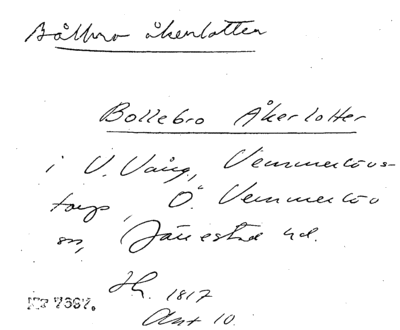 Bålbro åkerlotter
Bollebro Åkerlotter
i V. Vång, Vemmerlövs-
torp, Ö. Vemmerlöv
sn, Järrestad hd.
Sk. 1817
Akt 10.